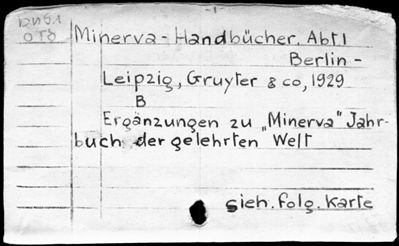 - 1 -
Minerva-Handbücher. Abt I
Berlin-
Leipzig, Gruyter & co, 1929
B
Ergänzungen zu „Minerva" Jahr-
buch der gelehrten Welt
sieh. folg. Karte